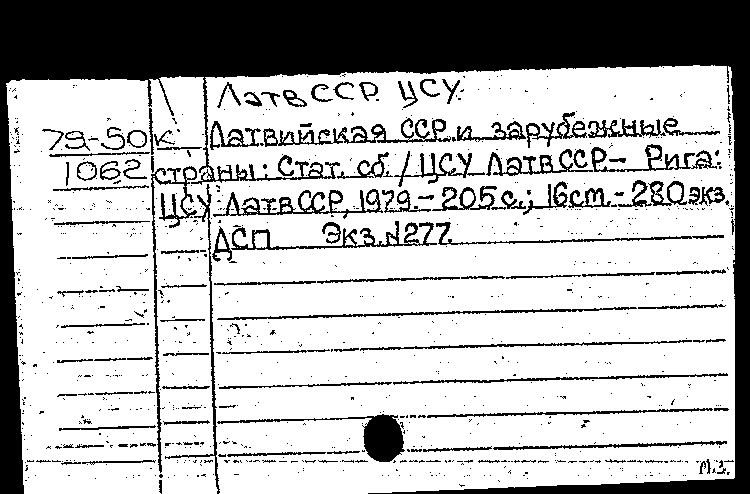 ЛатвССР. ЦСУ.
79-50к Латвийская ССР и зарубежные
1062 страны: Стат. сб. / ЦСУ ЛатвССР.- Рига:
ЦСУ ЛатвССР, 1979.- 205 с.; 16 ст.- 280 экз.
ДСП Экз.№277.
М.З.